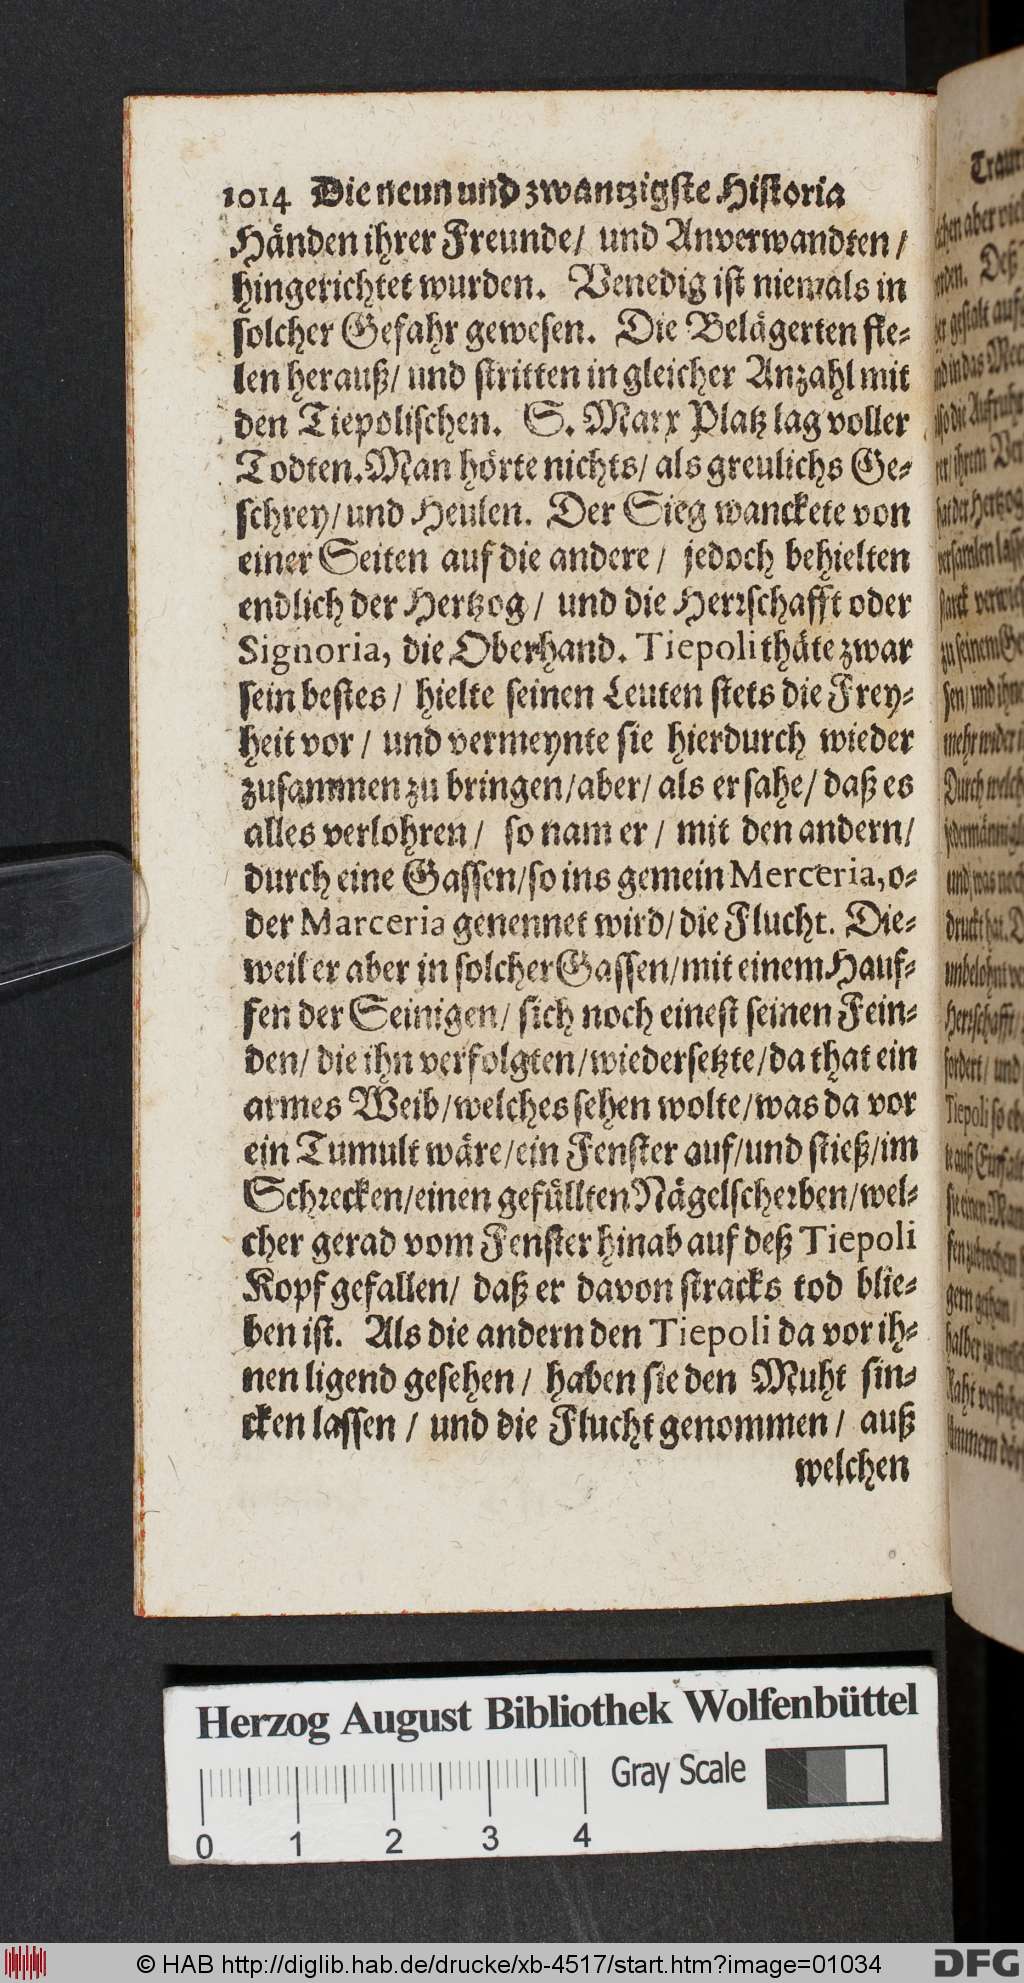 1014 Die neun und zwantzigste Historia
Händen ihrer Freunde/ und Anverwandten/
hingerichtet wurden. Venedig ist niemals in
solcher Gefahr gewesen. Die Belägerten fie-
len herauß/ und stritten in gleicher Anzahl mit
den Tiepolischen. S. Marx Platz lag voller
Todten. Man hörte nichts/ als greulichs Ge-
schrey/ und Heulen. Der Sieg wanckete von
einer Seiten auf die andere/ jedoch behielten
endlich der Hertzog/ und die Herrschafft oder
Signoria, die Oberhand. Tiepoli thäte zwar
sein bestes/ hielte seinen Leuten stets die Frey-
heit vor/ und vermeynte sie hierdurch wieder
zusammen zu bringen/ aber/ als er sahe/ daß es
alles verlohren/ so nam er/ mit den andern/
durch eine Gassen/ so ins gemein Merceria, o-
der Marceria genennet wird/ die Flucht. Die-
weil er aber in solcher Gassen/ mit einem Hauf-
fen der Seinigen/ sich noch einest seinen Fein-
den/ die ihn verfolgten/ wiedersetzte/ da that ein
armes Weib/ welches sehen wolte/ was da vor
ein Tumult wäre/ ein Fenster auf/ und stieß/ im
Schrecken/ einen gefüllten Nägelscherben/ wel-
cher gerad vom Fenster hinab auf deß Tiepoli
Kopf gefallen/ daß er davon stracks tod blie-
ben ist. Als die andern den Tiepoli da vor ih-
nen ligend gesehen/ haben sie den Muht sin-
cken lassen/ und die Flucht genommen/ auß
welchen
Herzog August Bibliothek Wolfenbüttel
Gray Scale
0 1 2 3 4
© HAB http://diglib.hab.de/drucke/xb-4517/start.htm?image=01034
DFG